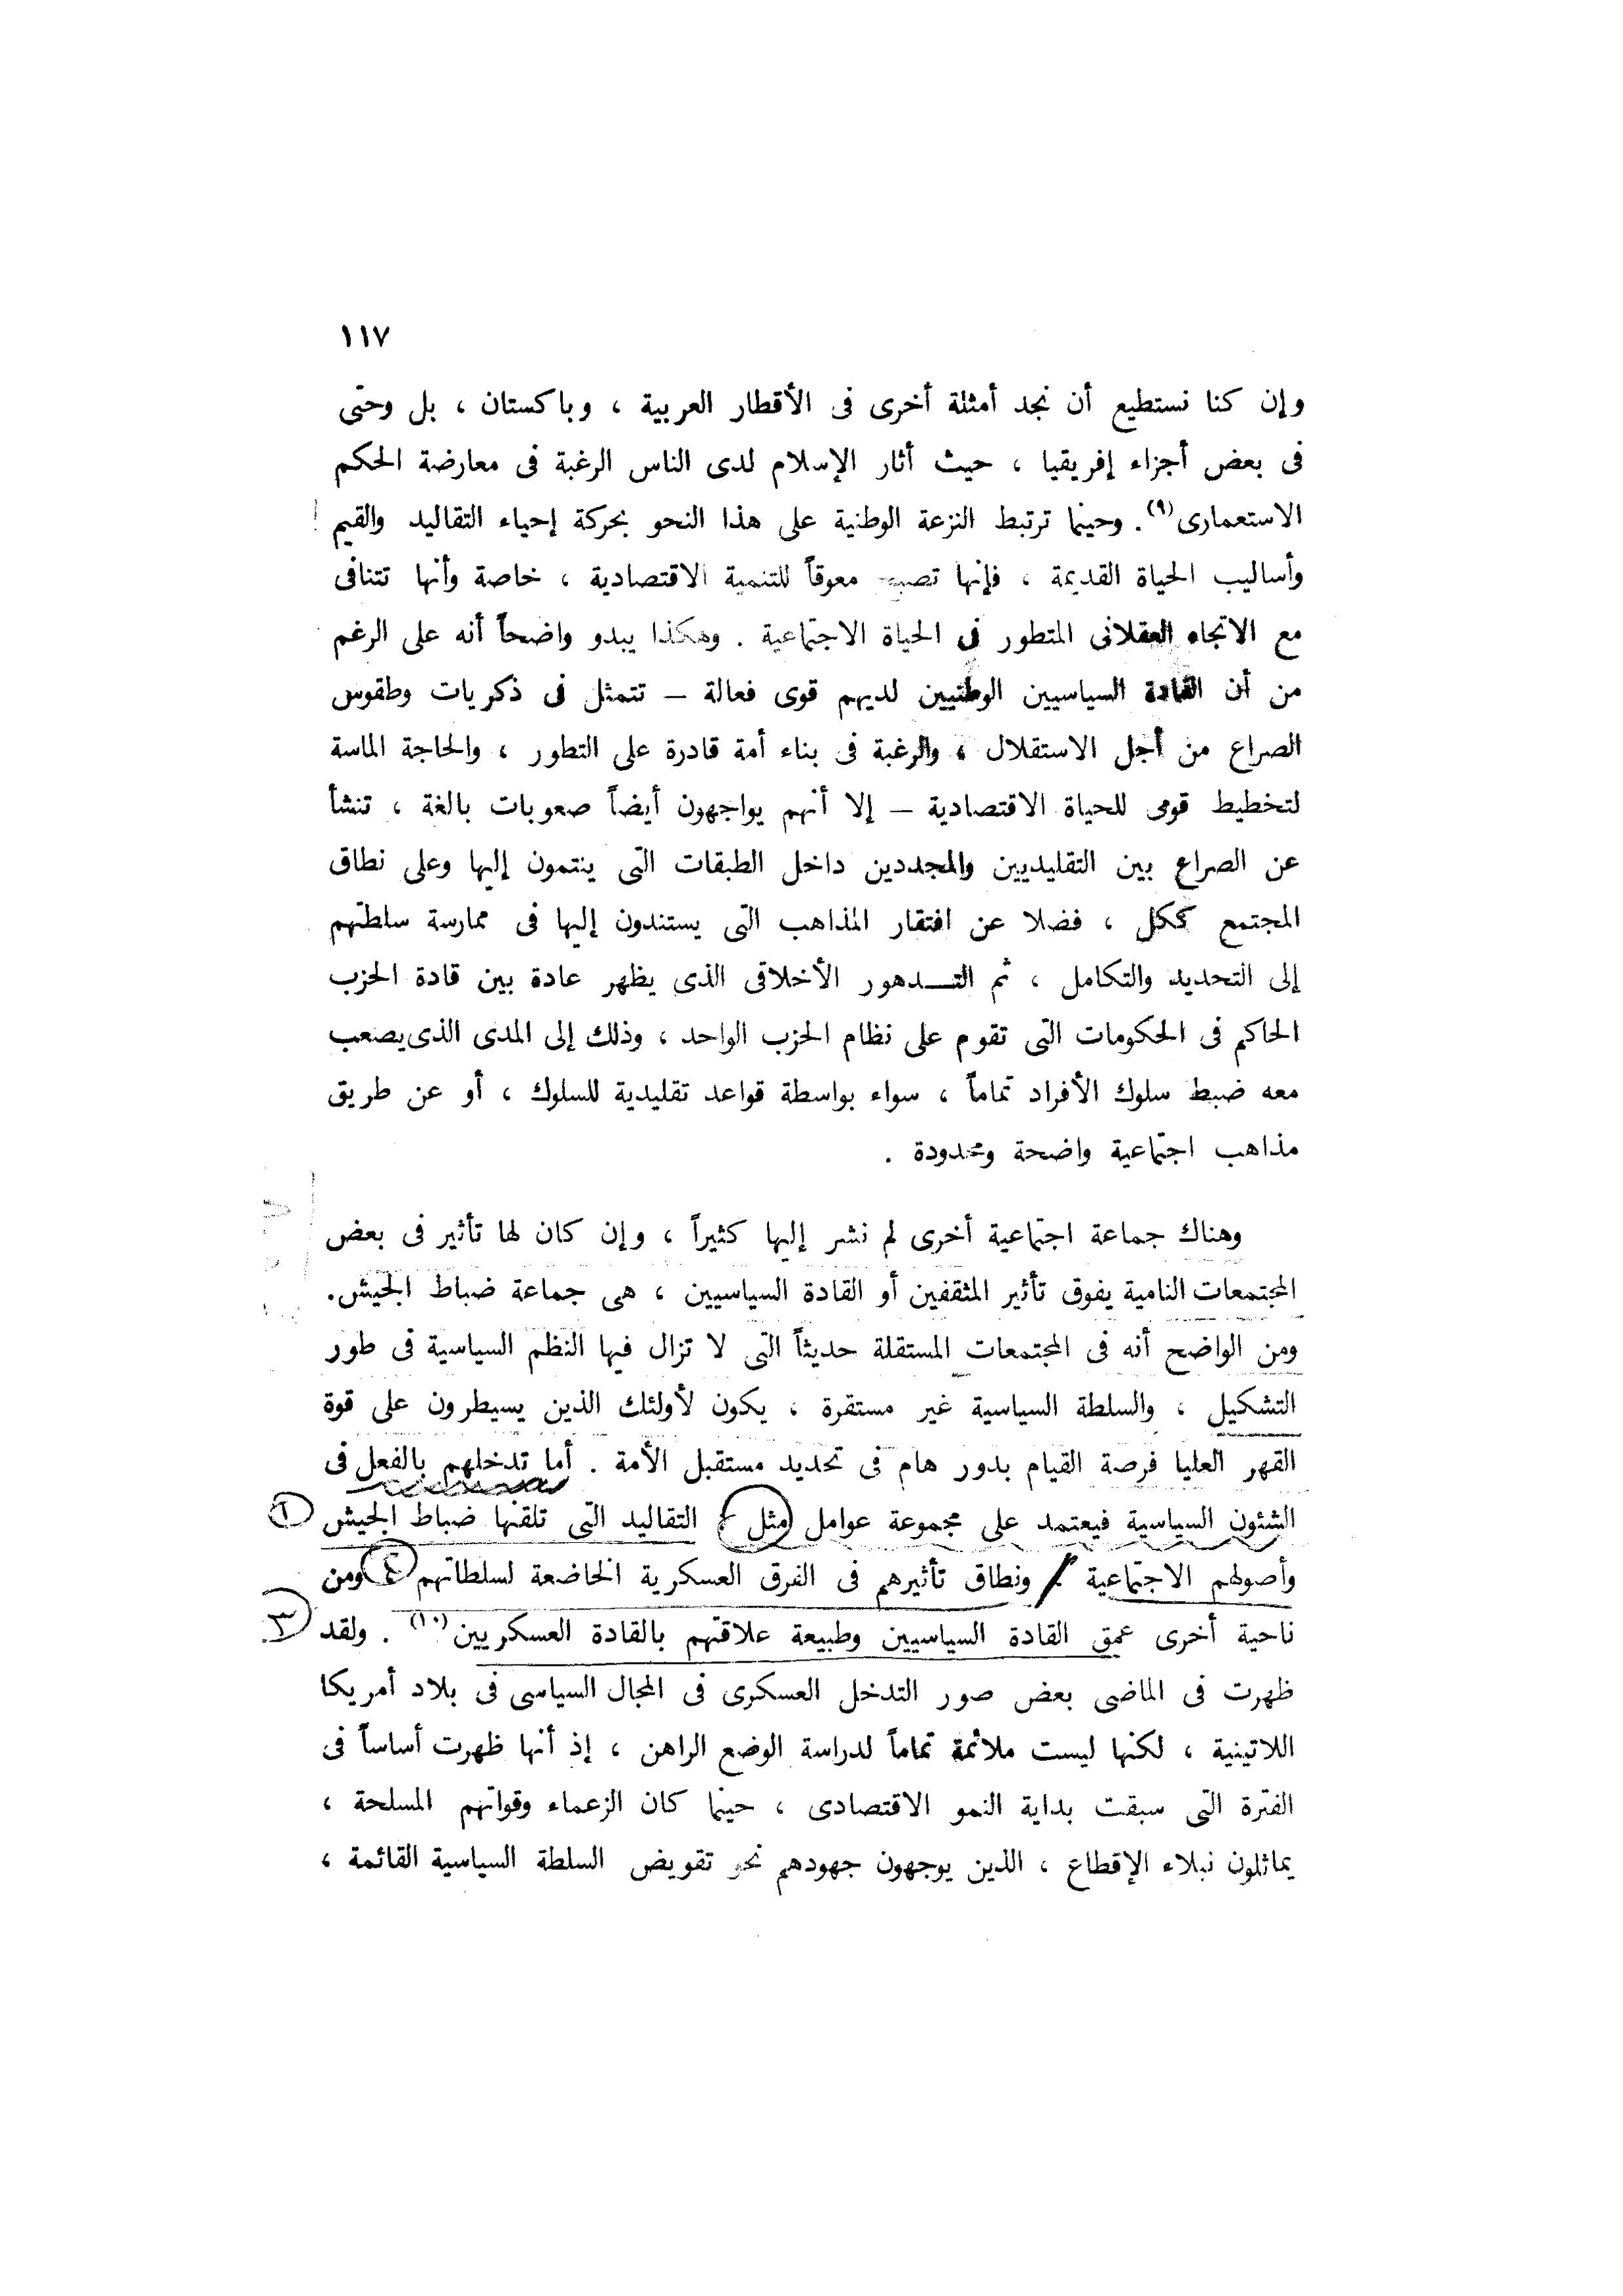 ١١٧
وإن كنا نستطيع أن نجد أمثلة أخرى فى الأقطار العربية ، وباكستان ، بل وحتى
فى بعض أجزاء إفريقيا ، حيث أثار الإسلام لدى الناس الرغبة فى معارضة الحكم
الاستعمارى(٩) . وحينما ترتبط النزعة الوطنية على هذا النحو بحركة إحياء التقاليد والقيم
وأساليب الحياة القديمة ، فإنها تصبح معوقاً للتنمية الاقتصادية ، خاصة وأنها تتنافى
مع الاتجاه العقلانى المتطور فى الحياة الاجتماعية . وهكذا يبدو واضحاً أنه على الرغم
من أن القادة السياسيين الوطنيين لديهم قوى فعالة – تتمثل فى ذكريات وطقوس
الصراع من أجل الاستقلال ، والرغبة فى بناء أمة قادرة على التطور ، والحاجة الماسة
لتخطيط قومى للحياة الاقتصادية – إلا أنهم يواجهون أيضاً صعوبات بالغة ، تنشأ
عن الصراع بين التقليديين والمجددين داخل الطبقات التى ينتمون إليها وعلى نطاق
المجتمع ككل ، فضلا عن افتقار المذاهب التى يستندون إليها فى ممارسة سلطتهم
إلى التحديد والتكامل ، ثم التـــدهور الأخلاقى الذى يظهر عادة بين قادة الحزب
الحاكم فى الحكومات التى تقوم على نظام الحزب الواحد ، وذلك إلى المدى الذى يصعب
معه ضبط سلوك الأفراد تماماً ، سواء بواسطة قواعد تقليدية للسلوك ، أو عن طريق
مذاهب اجتماعية واضحة ومحدودة .
وهناك جماعة اجتماعية أخرى لم نشر إليها كثيراً ، وإن كان لها تأثير فى بعض
المجتمعات النامية يفوق تأثير المثقفين أو القادة السياسيين ، هى جماعة ضباط الجيش.
ومن الواضح أنه فى المجتمعات المستقلة حديثاً التى لا تزال فيها النظم السياسية فى طور
التشكيل ، والسلطة السياسية غير مستقرة ، يكون لأولئك الذين يسيطرون على قوة
القهر العليا فرصة القيام بدور هام فى تحديد مستقبل الأمة . أما تدخلهم بالفعل فى
الشئون السياسية فيعتمد على مجموعة عوامل مثل : التقاليد التى تلقنها ضباط الجيش ١
وأصولهم الاجتماعية ونطاق تأثيرهم فى الفرق العسكرية الخاضعة لسلطاتهم ومن
ناحية أخرى عمق القادة السياسيين وطبيعة علاقتهم بالقادة العسكريين(١٠) . ولقد ٣
ظهرت فى الماضى بعض صور التدخل العسكرى فى المجال السياسى فى بلاد أمريكا
اللاتينية ، لكنها ليست ملائمة تماماً لدراسة الوضع الراهن ، إذ أنها ظهرت أساساً فى
الفترة التى سبقت بداية النمو الاقتصادى ، حينما كان الزعماء وقواتهم المسلحة ،
يماثلون نبلاء الإقطاع ، الذين يوجهون جهودهم نحو تقويض السلطة السياسية القائمة ،